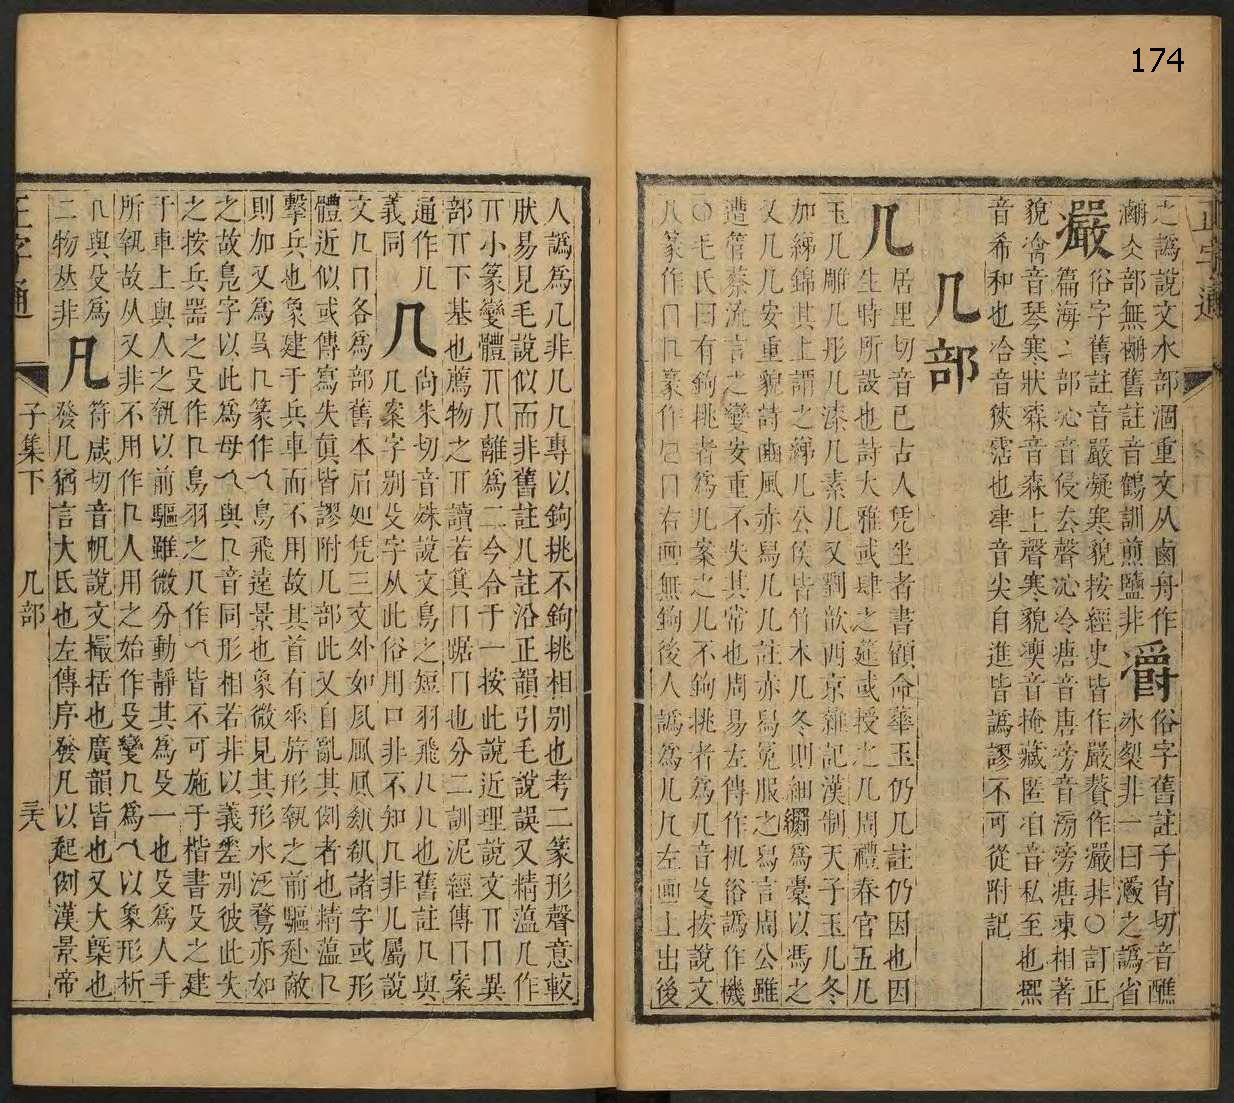 174
正字通
之譌說文水部涸重文从鹵舟作
瀰仌部無𤄷舊註音鶴訓煎鹽非
俗字舊註子肖切音醮
冰㓼非一曰瀫之譌省
俗字舊註音嚴凝寒貌按經史皆作嚴贅作𤅙非〇訂正
篇海冫部沁音侵去聲沁冷溏音唐滂音滂滂溏凍相著
貌凎音琴寒狀森音森上聲寒貌澳音掩藏匿洎音私至也
音希和也冾音狹霑也𠗊音尖自進皆譌謬不可從附記
几部
几
居里切音己古人凭坐者書顧命華玉仍几註仍因也因
生時所設也詩大雅或肆之筵或授之几周禮春官五几
玉几雕几彤几漆几素几又劉歆西京雜記漢制天子玉几冬
加綈錦其上謂之綈几公侯皆竹木几冬則細𦋺爲橐以馮之
又几几安重貌詩豳風赤舄几几註赤舄冕服之舄言周公雖
遭管蔡流言之變安重不失其常也周易左傳作机俗譌作機
〇毛氏曰有鉤挑者爲几案之几不鉤挑者爲几音殳按說文
右画無鉤後人譌爲几几左画上出後
人譌爲几非几几專以鉤挑不鉤挑相別也考二篆形聲意較
肰易見毛說似而非舊註几註沿正韻引毛說誤又精薀几作
丌小篆變體丌几離爲二今合于一按此說近理說文丌冂異
部丌下基也薦物之丌讀若箕冂踞冂也分二訓泥經傳冂案
通作几
義同
几
尚朱切音殊說文鳥之短羽飛几几也舊註几與
几案字別殳字从此俗用口非不知几非几屬說
文几冂各爲部舊本凥処凭三文外如凨凬凮𠘺𠘻諸字或形
體近似或傳寫失眞皆謬附几部此又自亂其例者也精薀几
擊兵也象建于兵車而不用故其首有垂斿形執之前驅赴敵
則加又爲殳几篆作乁鳥飛遠景也象微見其形水泛鶩亦如
之故鳧字以此爲母乁與几音同形相若非以義㘴別彼此失
之按兵器之殳作几鳥羽之几作乁皆不可施于楷書殳之建
于車上與人之執以前驅雖微分動靜其爲殳一也殳爲人手
所執故从又非不用作几人用之始作殳變几爲乁以象形析
几與殳爲
二物𠀤非
凡
符咸切音帆說文撮括也廣韻皆也又大槩也
發凡猶言大氐也左傳序發凡以起例漢景帝
正字通
子集下
几部